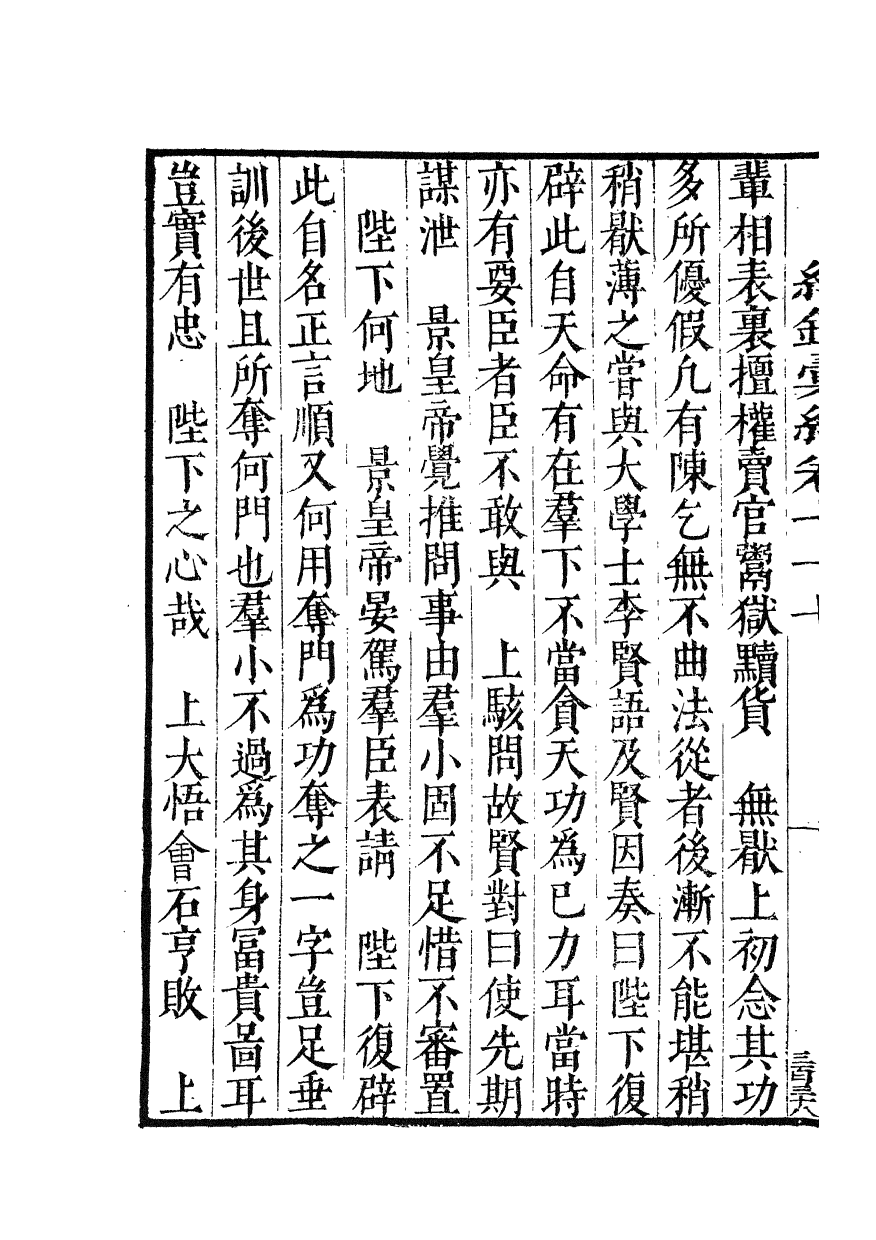 輩相表裏擅權賣官鬻獄黷貨　無厭上初念其功
多所優假凡有陳乞無不曲法從者後漸不能堪稍
稍厭薄之嘗與大學士李賢語及賢因奏曰陛下復
辟此自天命有在羣下不當貪天功為已力耳當時
亦有要臣者臣不敢與　上駭問故賢對曰使先期
謀泄　景皇帝覺推問事由羣小固不足惜不審置
　陛下何地　景皇帝晏駕羣臣表請　陛下復辟
此自名正言順又何用奪門為功奪之一字豈足垂
訓後世且所奪何門也羣小不過為其身冨貴啚耳
豈實有忠　陛下之心哉　上大悟會石亨敗　上